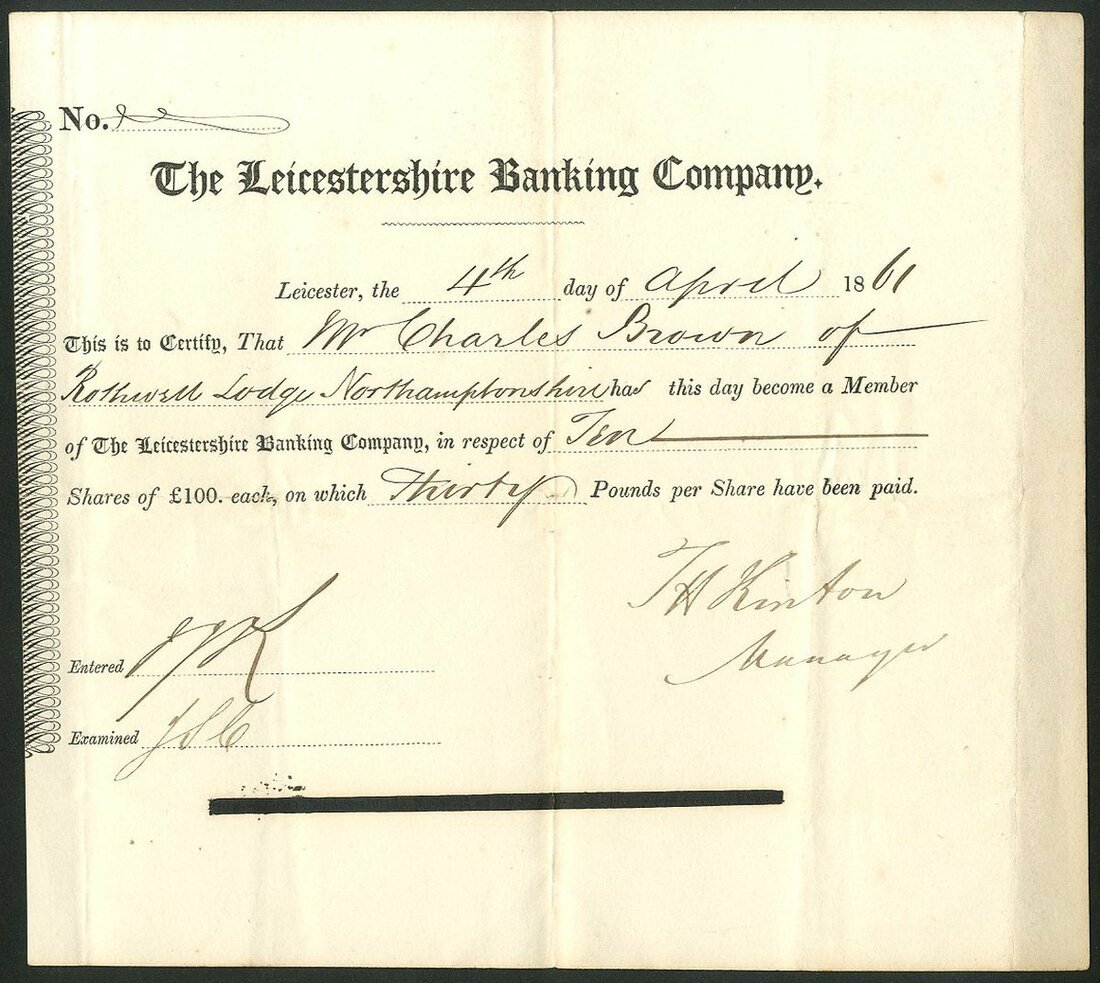 No.
The Leicestershire Banking Company.
Leicester, the 4th day of April 1861
This is to Certify, That Mr Charles Brown of
Rothwell Lodge Northamptonshire has this day become a Member
of The Leicestershire Banking Company, in respect of Ten
Shares of £100. each, on which Thirty Pounds per Share have been paid.
TH Kinton
Manager
Entered
Examined